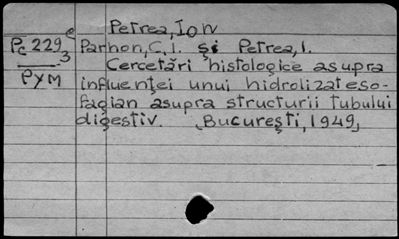 Petrea, Ion
Pc 229e
3
PYM
Parhon, C. I. și Petrea, I.
Cercetări histologice asupra
influenței unui hidrolizat eso-
fagian asupra structurii tubului
digestiv. [București, 1949]